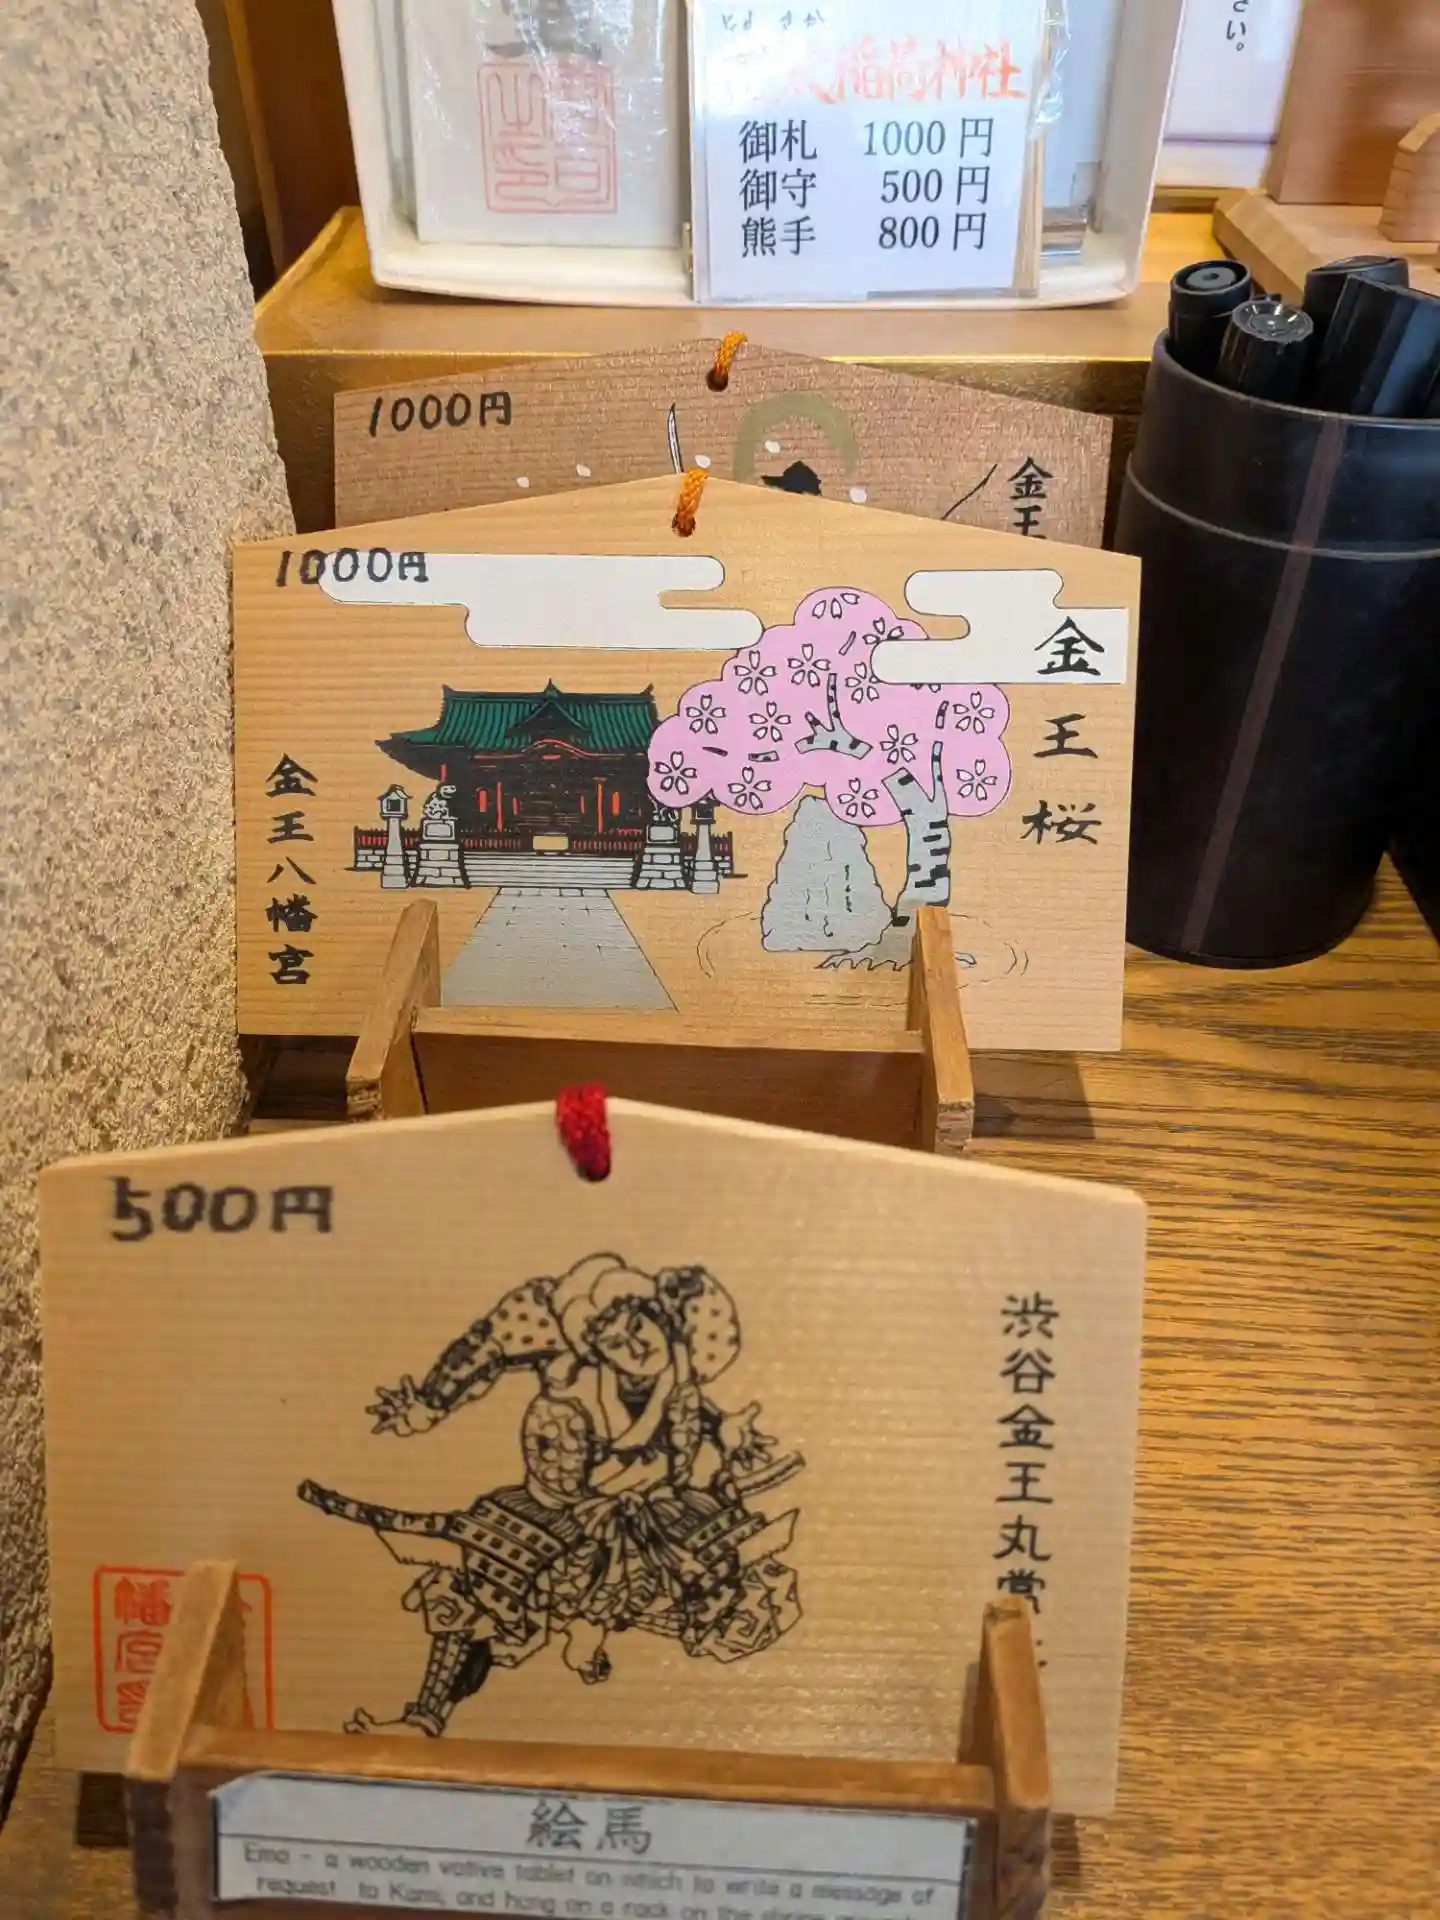 さい。
稲荷神社
御札 1000円
御守 500円
熊手 800円
1000円
金王
1000円
金王桜
金王八幡宮
500円
渋谷金王丸常
幡宮
絵馬
Ema - a wooden votive tablet on which to write a message or
request to Kami, and hang on a rack on the shrine